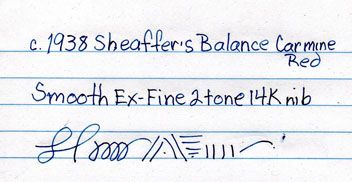 c. 1938 Sheaffer's Balance Carmine
Red
Smooth Ex-Fine 2 tone 14K nib